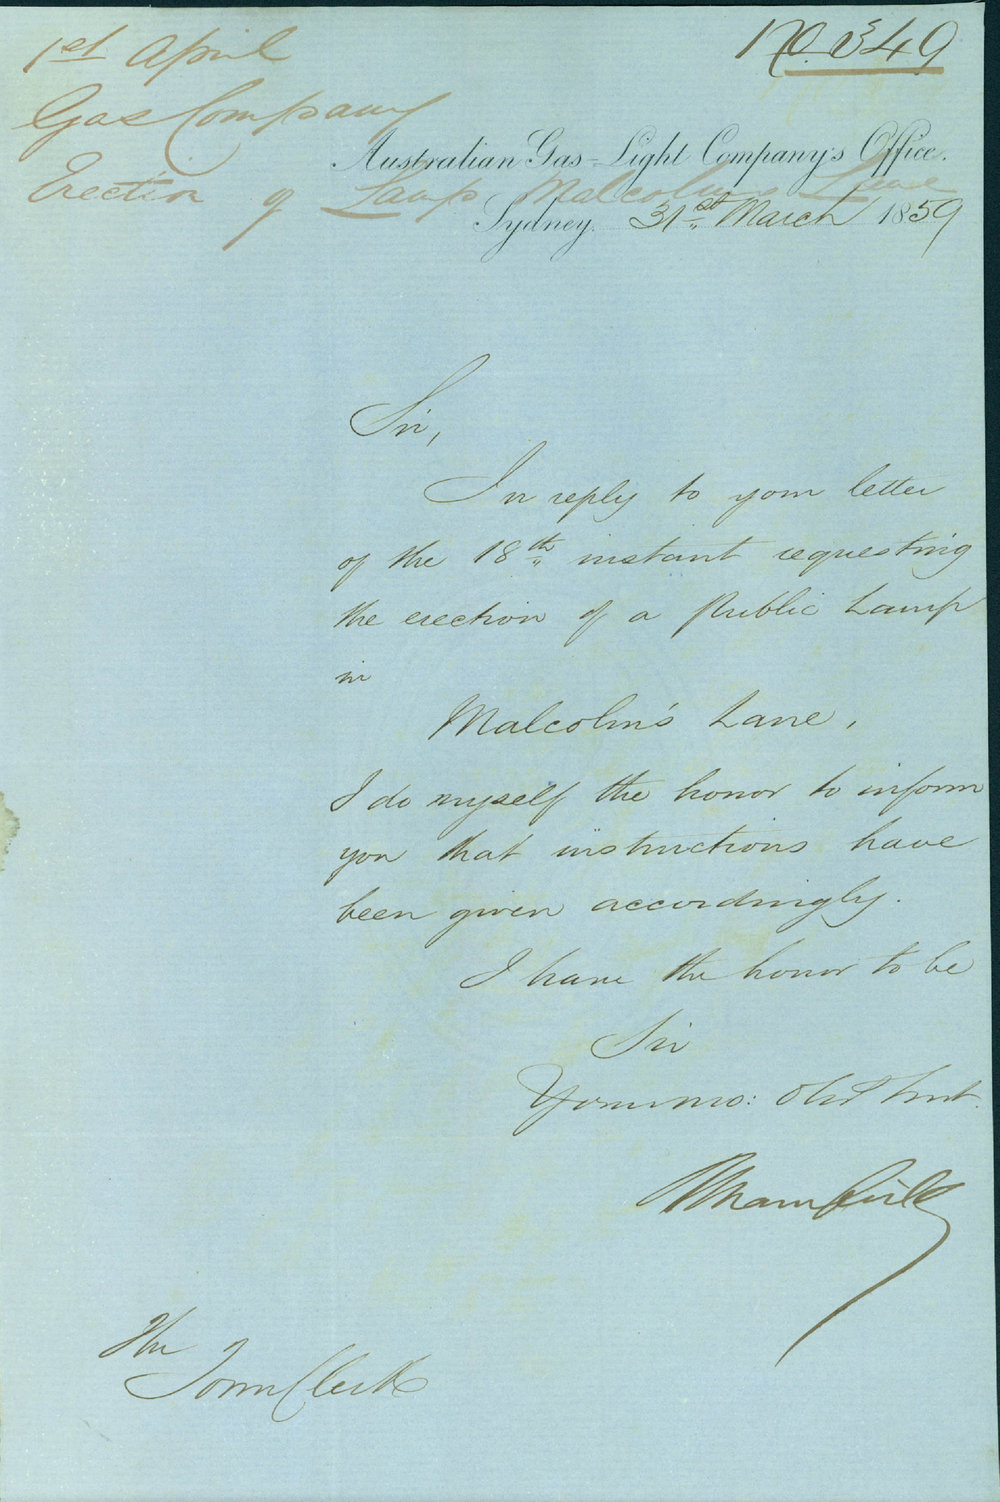 1st April
No. 349
Gas Company
Erection of Lamp Malcolms Lane
Australian Gas-Light Company's Office.
Sydney, 31st March 1859
Sir,
In reply to your letter
of the 18th instant requesting
the erection of a Public Lamp
in
Malcolm's Lane,
I do myself the honor to inform
you that instructions have
been given accordingly.
I have the honor to be
Sir
Your mo: Obt Servt.
The
Town Clerk